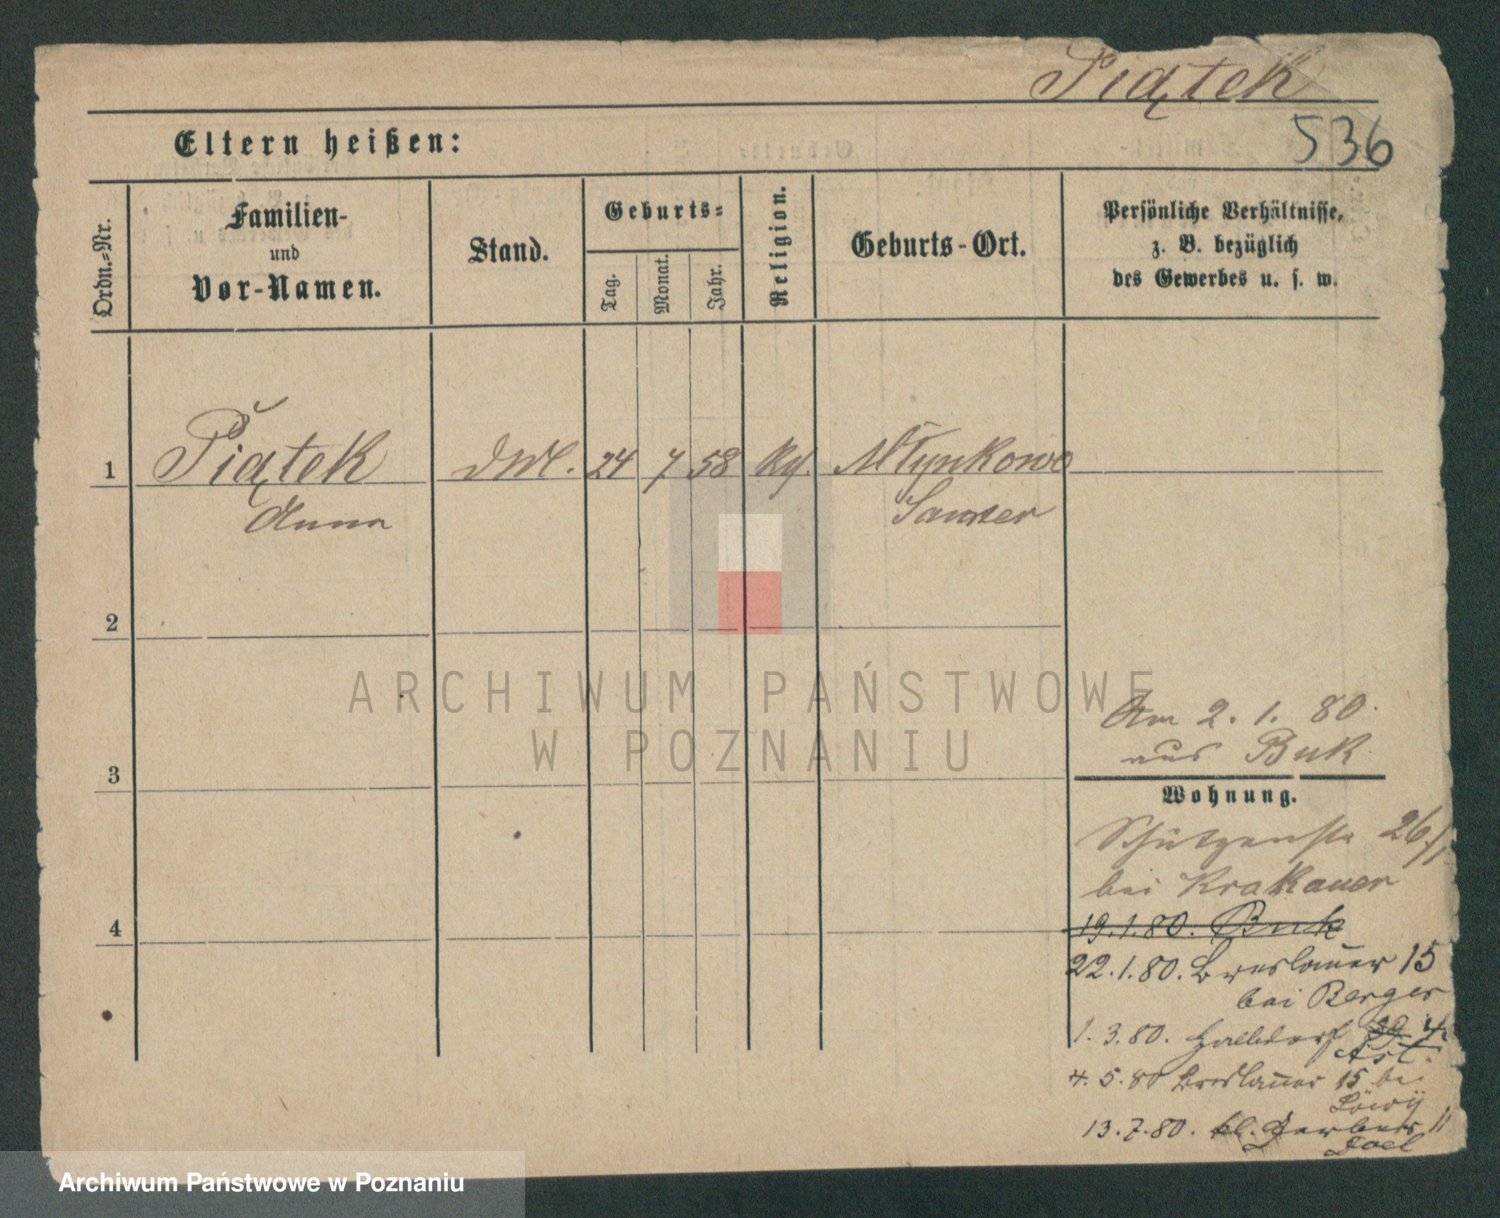 Piątek
Eltern heißen:
536
Ordn.-Nr.
Familien-
und
Vor-Namen.
Stand.
Geburts-
Tag.
Monat.
Jahr.
Religion.
Geburts-Ort.
Persönliche Verhältnisse,
z. B. bezüglich
des Gewerbes u. s. w.
1
Piątek 24 7 58 Młynkowo
Anna
Samter
2
ARCHIWUM PAŃSTWOWE
W POZNANIU
Am 2. 1. 80.
aus Buk
3
Wohnung.
Schützenstr 26/1
bei Krakauer
4
19.1.80. Buk
22.1.80. Breslauer 15
bei Berger
1. 3. 80. Halbdorf 39 4
4. 5. 80 Breslauer 15 bei
Löwy
13. 7. 80. kl. Gerber 11
Joel
Archiwum Państwowe w Poznaniu